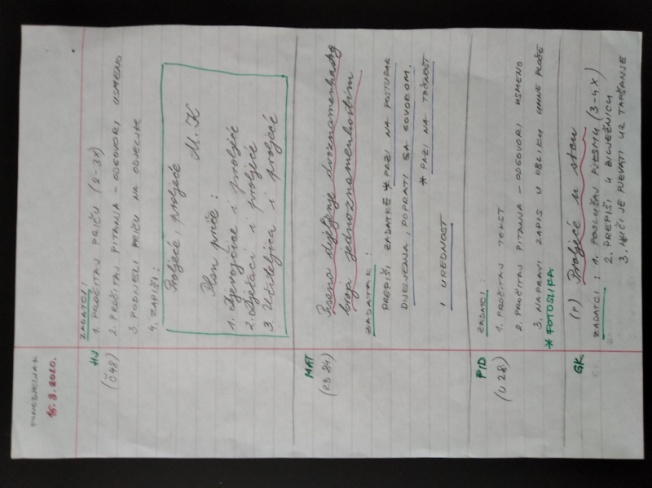 PONEDJELJAK
16.3.2020.
HJ
(Č 48)
ZADATCI:
1. PROČITAJ PRIČU (2-3X)
2. PROČITAJ PITANJA - ODGOVORI USMENO
3. PODIJELI PRIČU NA ODJELJKE
4. ZAPIŠI:
Proljeće, proljeće
M. K
Plan priče:
1. i proljeće
2. Dječaci i proljeće
3. Učiteljica i proljeće
MAT
(ZB 84)
Pisano dijeljenje dvoznamenkastog
broja jednoznamenkastim
ZADATAK:
PREPIŠI ZADATKE * PAZI NA POSTUPAK
DIJELJENJA, POPRATI GA GOVOROM.
* PAZI NA TOČNOST
I UREDNOST
PID
(U 28)
ZADATCI:
1. PROČITAJ TEKST
2. PROČITAJ PITANJA - ODGOVORI USMENO
3. NAPRAVI ZAPIS U OBLIKU UMNE MAPE
* FOTOGRAFIJA
GK
(P) Proljeće u stanu
ZADATCI: 1. POSLUŠAJ PJESMU (3-4X)
2. PREPIŠI U BILJEŽNICU
3. UČI JE PJEVATI UZ TAPŠANJE